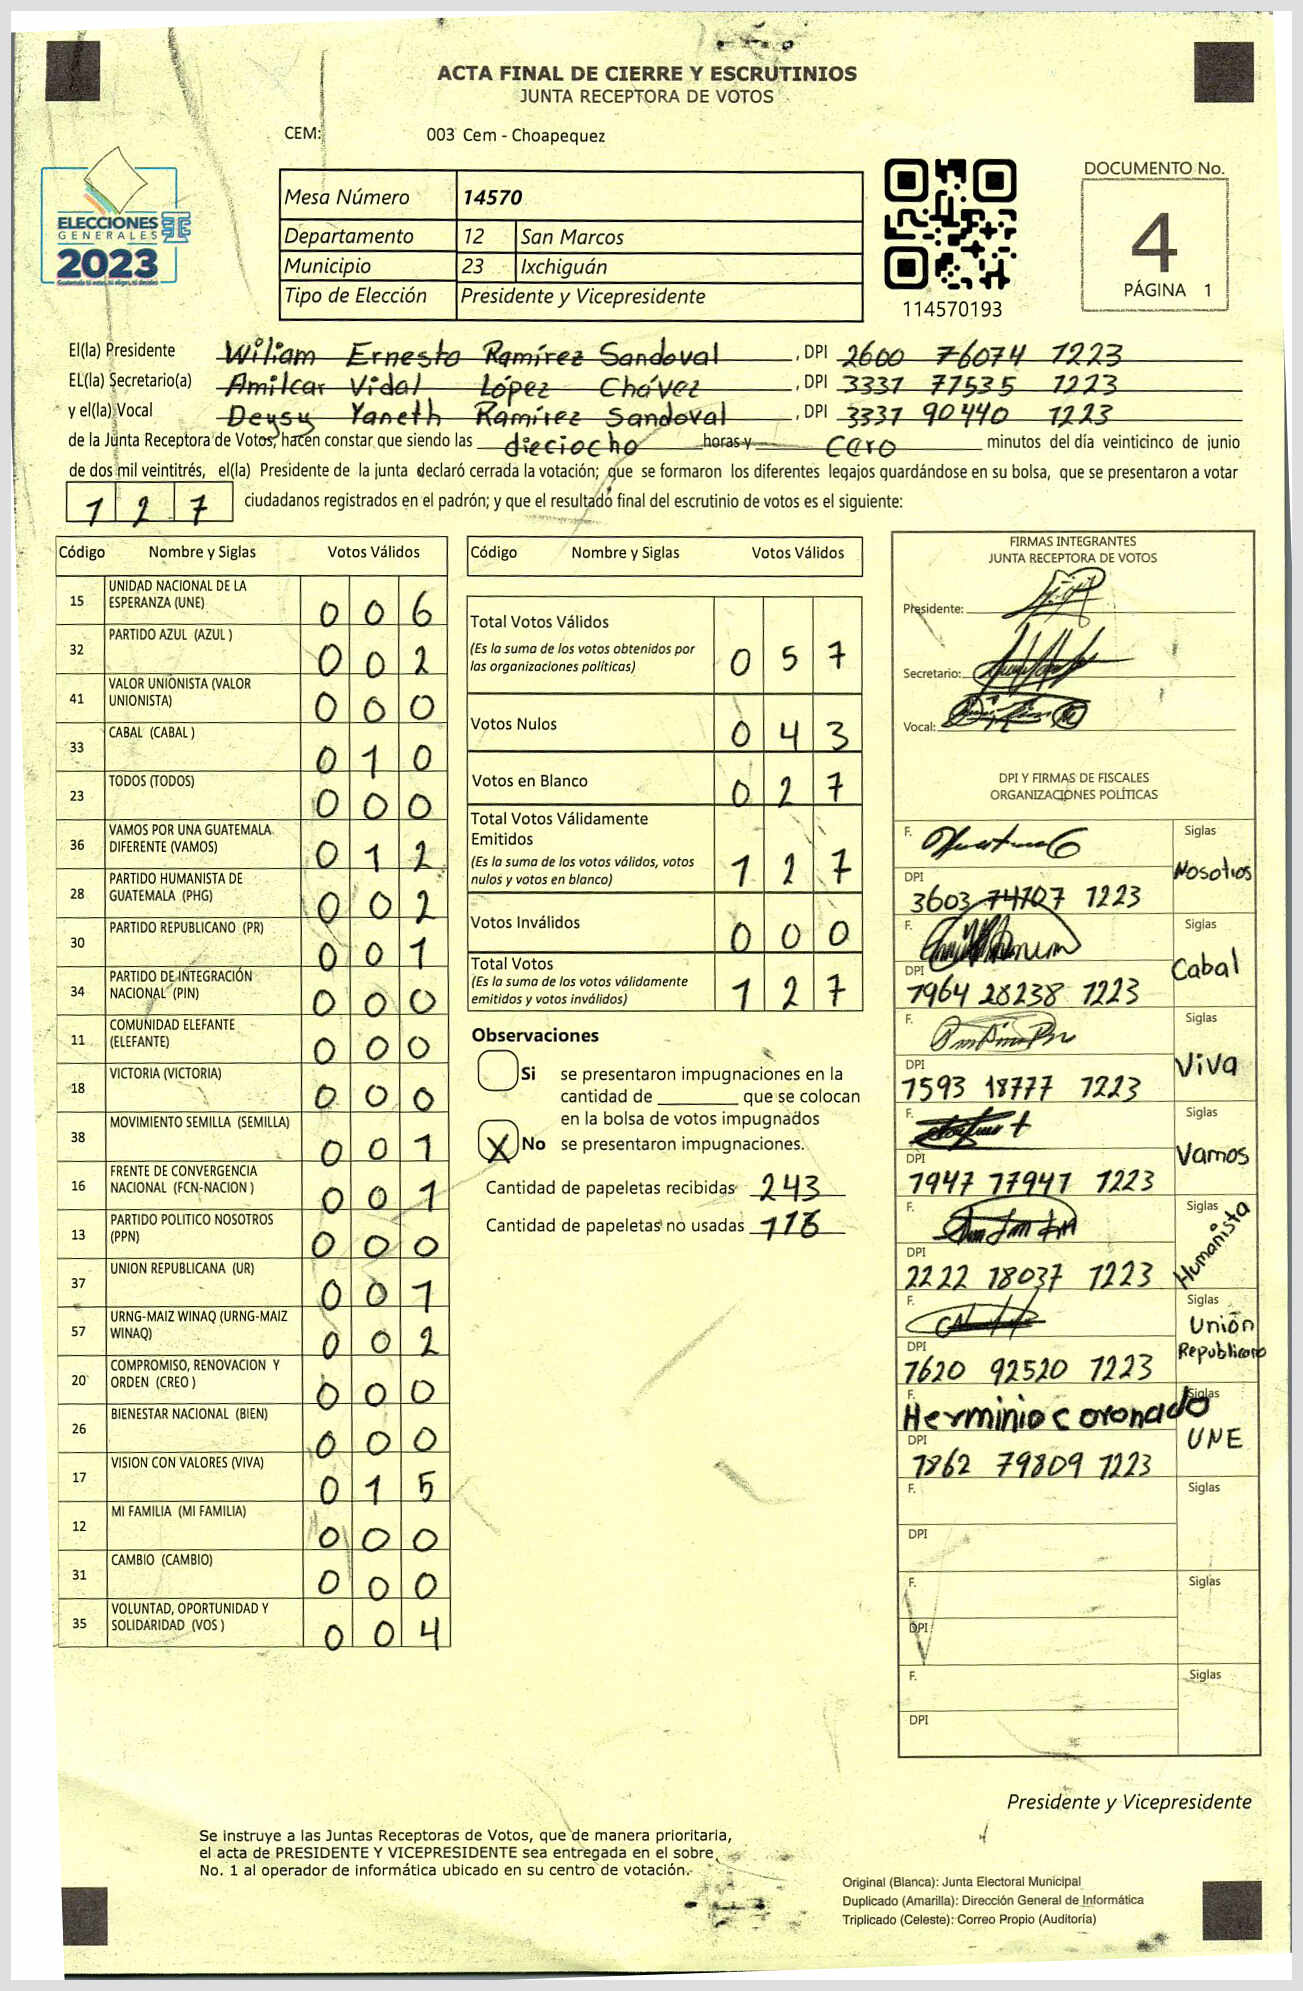 ACTA FINAL DE CIERRE Y ESCRUTINIOS
JUNTA RECEPTORA DE VOTOS
CEM: 003 Cem - Choapequez
ELECCIONES
GENERALES
2023
Mesa Número 14570
Departamento 12 San Marcos
Municipio 23 Ixchiguán
Tipo de Elección Presidente y Vicepresidente
114570193
DOCUMENTO No.
4
PÁGINA 1
El(la) Presidente Wiliam Ernesto Ramírez Sandoval , DPI 2600 76074 1223
EL(la) Secretario(a) Amilcar Vidal López Chávez , DPI 3337 77535 1223
y el(la) Vocal Deysy Yaneth Ramírez Sandoval , DPI 3337 90440 1223
de la Junta Receptora de Votos, hacen constar que siendo las dieciocho horas y cero minutos del día veinticinco de junio
de dos mil veintitrés, el(la) Presidente de la junta declaró cerrada la votación; que se formaron los diferentes legajos guardándose en su bolsa, que se presentaron a votar
127 ciudadanos registrados en el padrón; y que el resultado final del escrutinio de votos es el siguiente:
Código Nombre y Siglas Votos Válidos
15 UNIDAD NACIONAL DE LA
ESPERANZA (UNE) 0 0 6
32 PARTIDO AZUL (AZUL ) 0 0 2
41 VALOR UNIONISTA (VALOR
UNIONISTA) 0 0 0
33 CABAL (CABAL ) 0 1 0
23 TODOS (TODOS) 0 0 0
36 VAMOS POR UNA GUATEMALA
DIFERENTE (VAMOS) 0 1 2
28 PARTIDO HUMANISTA DE
GUATEMALA (PHG) 0 0 2
30 PARTIDO REPUBLICANO (PR) 0 0 1
34 PARTIDO DE INTEGRACIÓN
NACIONAL (PIN) 0 0 0
11 COMUNIDAD ELEFANTE
(ELEFANTE) 0 0 0
18 VICTORIA (VICTORIA) 0 0 0
38 MOVIMIENTO SEMILLA (SEMILLA) 0 0 1
16 FRENTE DE CONVERGENCIA
NACIONAL (FCN-NACION ) 0 0 1
13 PARTIDO POLITICO NOSOTROS
(PPN) 0 0 0
37 UNION REPUBLICANA (UR) 0 0 1
57 URNG-MAIZ WINAQ (URNG-MAIZ
WINAQ) 0 0 2
20 COMPROMISO, RENOVACION Y
ORDEN (CREO ) 0 0 0
26 BIENESTAR NACIONAL (BIEN) 0 0 0
17 VISION CON VALORES (VIVA) 0 1 5
12 MI FAMILIA (MI FAMILIA) 0 0 0
31 CAMBIO (CAMBIO) 0 0 0
35 VOLUNTAD, OPORTUNIDAD Y
SOLIDARIDAD (VOS ) 0 0 4
Código Nombre y Siglas Votos Válidos
Total Votos Válidos
(Es la suma de los votos obtenidos por
las organizaciones políticas) 0 5 7
Votos Nulos 0 4 3
Votos en Blanco 0 2 7
Total Votos Válidamente
Emitidos
(Es la suma de los votos válidos, votos
nulos y votos en blanco) 1 2 7
Votos Inválidos 0 0 0
Total Votos
(Es la suma de los votos válidamente
emitidos y votos inválidos) 1 2 7
Observaciones
Si se presentaron impugnaciones en la
cantidad de ________ que se colocan
en la bolsa de votos impugnados
X No se presentaron impugnaciones.
Cantidad de papeletas recibidas 243
Cantidad de papeletas no usadas 116
FIRMAS INTEGRANTES
JUNTA RECEPTORA DE VOTOS
Presidente:
Secretario:
Vocal:
DPI Y FIRMAS DE FISCALES
ORGANIZACIONES POLÍTICAS
F. Siglas
Nosotros
DPI
3603 74707 1223
F. Siglas
Cabal
DPI
7964 28238 1223
F. Siglas
Viva
DPI
7593 18777 1223
F. Siglas
Vamos
DPI
7947 77947 1223
F. Siglas
Humanista
DPI
2222 18037 1223
F. Siglas
Unión
Republicano
DPI
7620 92520 1223
F. Siglas
Herminio coronado
UNE
DPI
7862 79809 1223
F. Siglas
DPI
F. Siglas
DPI
F. Siglas
DPI
Presidente y Vicepresidente
Se instruye a las Juntas Receptoras de Votos, que de manera prioritaria,
el acta de PRESIDENTE Y VICEPRESIDENTE sea entregada en el sobre
No. 1 al operador de informática ubicado en su centro de votación.
Original (Blanca): Junta Electoral Municipal
Duplicado (Amarilla): Dirección General de Informática
Triplicado (Celeste): Correo Propio (Auditoría)